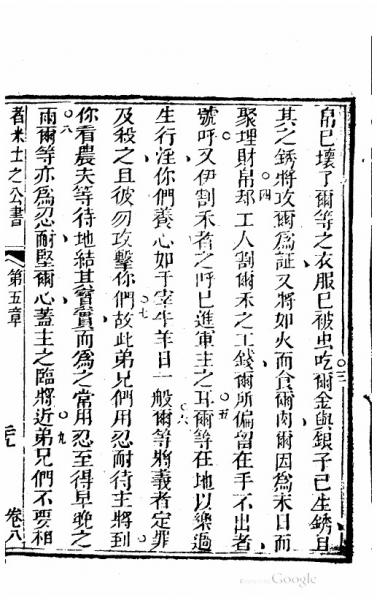 帛已壞了爾等之衣服已被虫吃爾金與銀子已生銹且
三
其之銹將攻爾爲証又將如火而食爾肉爾因爲末日而
聚埋財帛
四
却工人割爾禾之工錢爾所偏留在手不出者
號呼又伊割禾者之呼已進軍主之耳
五
爾等在地以樂過
生行淫你們養心如于宰牛羊日一般
六
爾等將義者定罪
及殺之且彼勿攻擊你們
七
故此弟兄們用忍耐待主將到
你看農夫等待地結其寳實而爲之常用忍至得早晚之
雨
八
爾等亦爲忍耐堅爾心蓋主之臨將近
九
弟兄們不要相
者米士之公書
第五章
卷八
Google